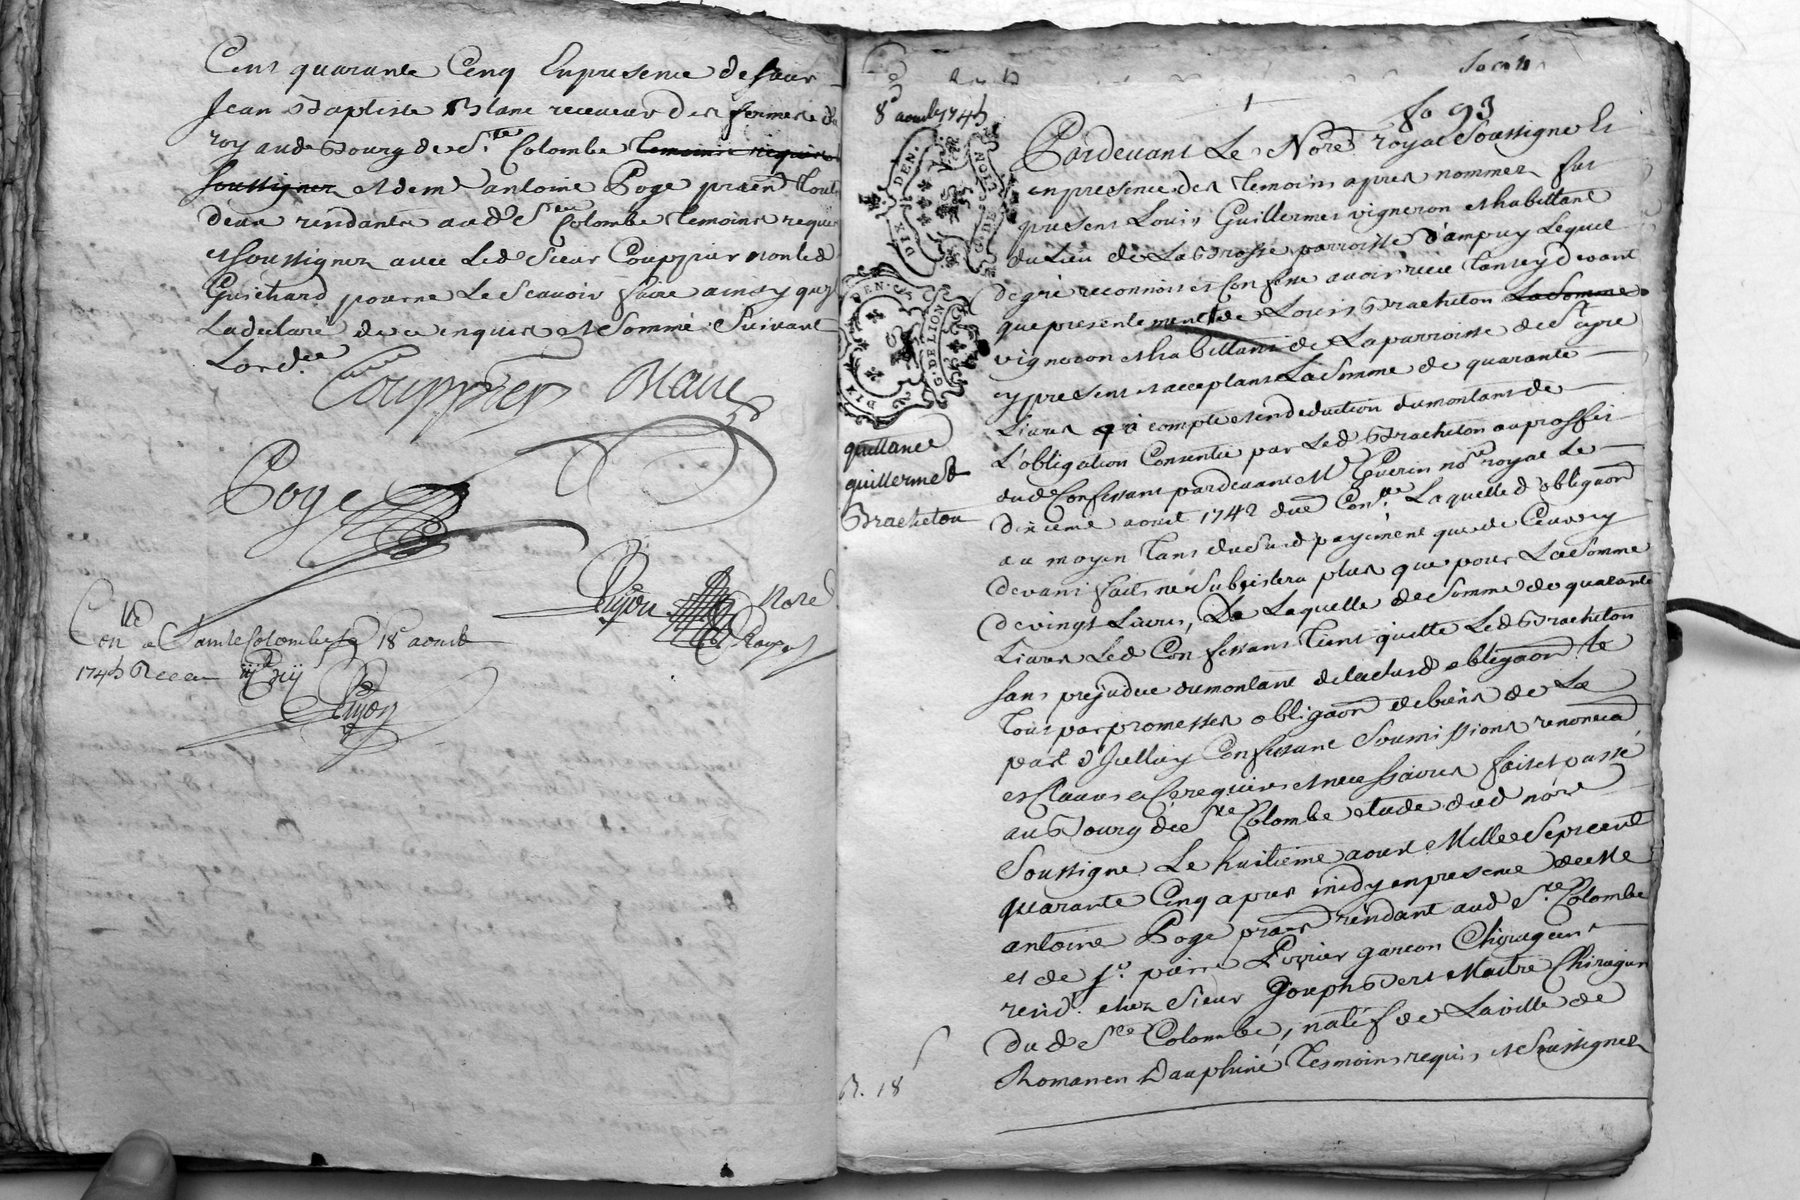 Cens quarante Cinq En presence de sieur
Jean Baptiste Blanc receveur des fermes du
roy aud. Bourg de Ste Colombe temoins requis
soussignez et de me antoine Poge praen tout
deux residants aud. Ste Colombe temoins requis
et soussignez avec led. Sieur Couppier non led
Guichard pour ne Le Scavoir faire ainsy quil
La declaré de ce enquis et Sommé Suivant
Lord.ce
Couppier Blanc
Poge
Guyon Nore
Royal
Con.lle a Sainte Colombe le 18e aoust
1745 Receu
Guyon
fo 93
8e aoust 1745
DIX DEN.
G. DE LION
DIX DEN.
G. DE LION
quittance
guillermet
Bracheton
Pardevant Le Nore royal Soussigné Et
en presence des temoins apres nommez fut
present Louis Guillermet vigneron et habittant
du Lieu de La Brosse parroisse d'ampuy Lequel
de gré reconnoit et Confesse avoir receu tant cy devant
que presentement de Louis Bracheton La Somme
vigneron et habittant de La parroisse de St Cyre
cy present et acceptant La Somme de quarante
Livres a compte et en deduction du montant de
L'obligation Consentie par Led. Bracheton au proffit
dud. Confessant pardevant Me Guerin nore royal Le
dixieme aoust 1742 due Con.lle Laquelle d. obligaon
au moyen tant du Susd. payement que de Ceux cy
devant faits ne Subsistera plus que pour La Somme
de vingt Livres, De Laquelle de Somme de quarante
Livres Led. Confessant tient quitte Led. Bracheton
Sans prejudice du montant de lad. obligaon
tout par promesses obligaon de biens de La
part d'Icelluy Confessant Soumissions renoncia
et Clauses a Ce requises et necessaires fait et passé
au Bourg de Ste Colombe etude dud. nore
Soussigné Le huitieme aoust Mille Sept Cent
quarante Cinq apres midy en presence de Me
antoine Poge praen residant aud. Ste Colombe
et de Sr. pierre Perrier garcon Chirurgien
resid. chez Sieur Joseph Bert Maitre Chirurgien
du d. Ste Colombe, natif de La ville de
Romans en Dauphiné tesmoins requis et Soussignez
R. 18